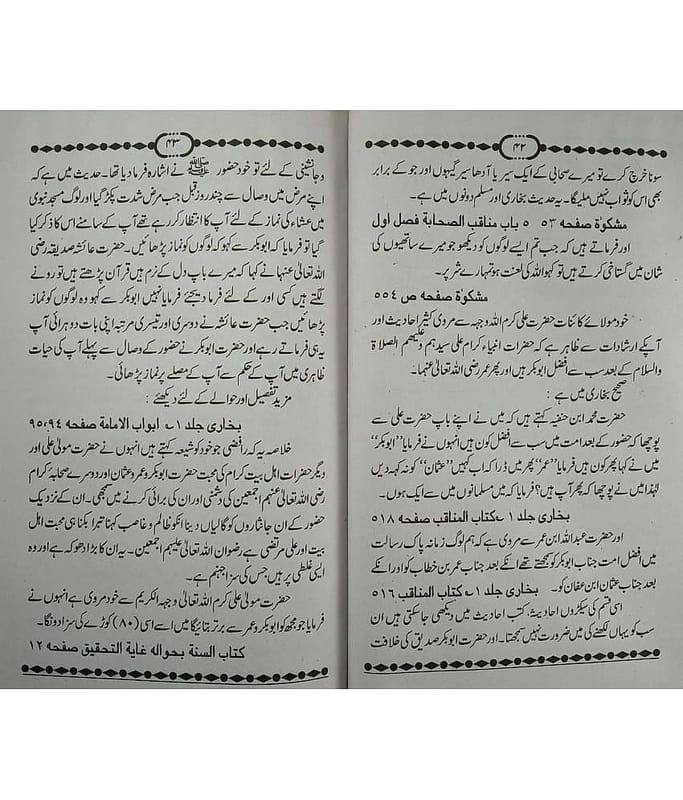 ۴۲
سونا خرچ کرے تو میرے صحابی کے ایک سیر یا آدھا سیر گیہوں اور جو کے برابر
بھی اس کو ثواب نہیں ملیگا۔ یہ حدیث بخاری اور مسلم دونوں میں ہے۔
مشکوٰۃ صفحہ ۵۵۳ باب مناقب الصحابۃ فصل اول
اور فرماتے ہیں کہ جب تم ایسے لوگوں کو دیکھو جو میرے ساتھیوں کی
شان میں گستاخی کرتے ہیں تو کہو اللہ کی لعنت ہو تمہارے شر پر۔
مشکوٰۃ صفحہ ص ۵۵۴
خود مولائے کائنات حضرت علی کرم اللہ وجہہ سے مروی کثیر احادیث اور
آپکے ارشادات سے ظاہر ہے کہ حضرات انبیاء کرام علی سیدہم وعلیہم الصلاۃ
والسلام کے بعد سب سے افضل ابوبکر ہیں اور پھر عمر رضی اللہ تعالیٰ عنہما۔
صحیح بخاری میں ہے:
حضرت محمد ابن حنفیہ کہتے ہیں کہ میں نے اپنے باپ حضرت علی سے
پوچھا کہ حضور کے بعد امت میں سب سے افضل کون ہیں انہوں نے فرمایا ”ابوبکر“
میں نے کہا پھر کون ہیں فرمایا ”عمر“ پھر میں ڈرا کہ اب کہیں ”عثمان“ کو نہ کہہ دیں
لہٰذا میں نے پوچھا کہ پھر آپ ہیں؟ فرمایا کہ میں مسلمانوں میں سے ایک ہوں۔
بخاری جلد ۱، کتاب المناقب صفحہ ۵۱۸
اور حضرت عبداللہ ابن عمر سے مروی ہے کہ ہم لوگ زمانہ پاک رسالت
میں افضل امت جناب ابوبکر کو سمجھتے تھے انکے بعد جناب عمر بن خطاب کو اور انکے
بعد جناب عثمان ابن عفان کو۔ بخاری جلد ۱، کتاب المناقب ۵۱۶
اسی قسم کی سیکڑوں احادیث، کتب احادیث میں دیکھی جاسکتی ہیں ان
سب کو یہاں لکھنے کی میں ضرورت نہیں سمجھتا۔ اور حضرت ابوبکر صدیق کی خلافت
۴۳
وجانشینی کے لئے تو خود حضور ﷺ نے اشارہ فرمادیا تھا۔ حدیث میں ہے کہ
اپنے مرض میں وصال سے چند روز قبل جب مرض شدت پکڑ گیا اور لوگ مسجد نبوی
میں عشاء کی نماز کے لئے آپ کا انتظار کر رہے تھے آپ کے سامنے اس کا ذکر کیا
گیا تو فرمایا کہ ابوبکر سے کہو کہ لوگوں کو نماز پڑھائیں۔ حضرت عائشہ صدیقہ رضی
اللہ تعالیٰ عنہا نے کہا کہ میرے باپ دل کے نرم ہیں قرآن پڑھتے ہیں تو رونے
لگتے ہیں کسی اور کے لئے فرما دیجئے فرمایا نہیں ابوبکر سے کہو وہ لوگوں کو نماز
پڑھائیں جب حضرت عائشہ نے دوسری اور تیسری مرتبہ اپنی بات دوہرائی آپ
یہی فرماتے رہے اور حضرت ابوبکر نے حضور کے وصال سے پہلے آپ کی حیات
ظاہری میں آپ کے حکم سے آپ کے مصلے پر نماز پڑھائی۔
مزید تفصیل اور حوالے کے لئے دیکھئے:
بخاری جلد ۱، ابواب الامامۃ صفحہ ۹۵،۹۴
خلاصہ یہ کہ رافضی جو خود کو شیعہ کہتے ہیں انہوں نے حضرت مولیٰ علی اور
دیگر حضرات اہل بیت کرام کی محبت حضرت ابوبکر و عمر و عثمان اور دوسرے صحابۂ کرام
رضی اللہ تعالیٰ عنہم اجمعین کی دشمنی اور ان کی برائی کرنے میں سمجھی۔ ان کے نزدیک
حضور کے ان جانثاروں کو گالیاں دینا انکو ظالم و غاصب کہنا تبرا بکنا ہی محبت اہل
بیت اور علی مرتضیٰ ہے رضوان اللہ تعالیٰ علیہم اجمعین۔ یہ ان کا بڑا دھوکہ ہے اور وہ
ایسی غلطی پر ہیں جس کی سزا جہنم ہے۔
حضرت مولیٰ علی کرم اللہ تعالیٰ وجہہ الکریم سے خود مروی ہے انہوں نے
فرمایا جو مجھ کو ابوبکر و عمر سے برتر بتائیگا میں اسے اسی (۸۰) کوڑے کی سزا دونگا۔
کتاب السنۃ بحوالہ غایۃ التحقیق صفحہ ۱۲